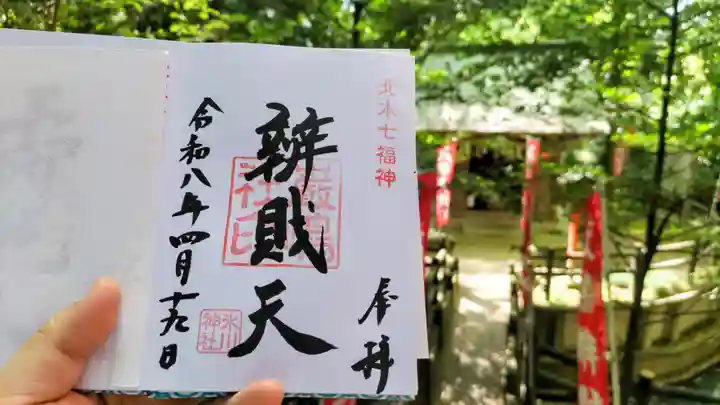 北本七福神
奉拝
辨財天
厳島社印
令和八年四月十九日
氷川神社